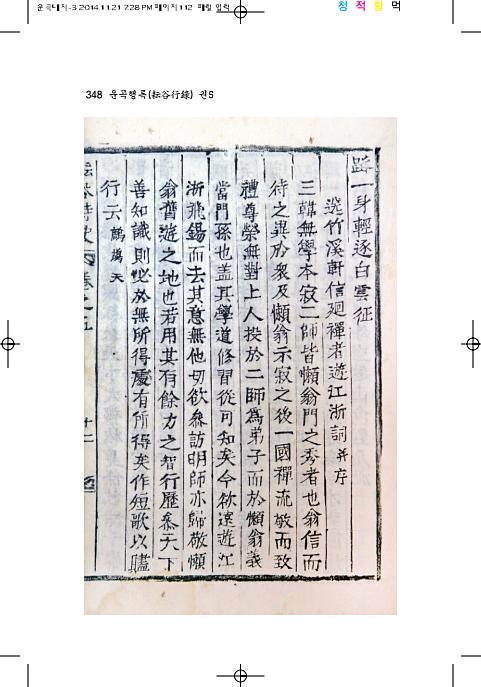 운곡내지-3 2014.11.21 7:28 PM 페이지112 매킬 입력
청 적 황 먹
348 운곡행록(耘谷行錄) 권5
蹤一身輕逐白雲征
送竹溪軒信廻禪者遊江浙詞 并序
三韓無學本寂二師皆懶翁門之秀者也翁信而
待之異於衆及懶翁示寂之後一國禪流敬而致
禮尊榮無對上人投於二師爲弟子而於懶翁義
當門孫也盖其學道修習從可知矣今欲遠遊江
浙飛錫而去其意無他切欲叅訪明師亦歸敬懶
翁舊遊之地也若用其有餘力之智行歷叅天下
善知識則必於無所得處有所得矣作短歌以贐
行云
耘谷詩史 卷之五 十二